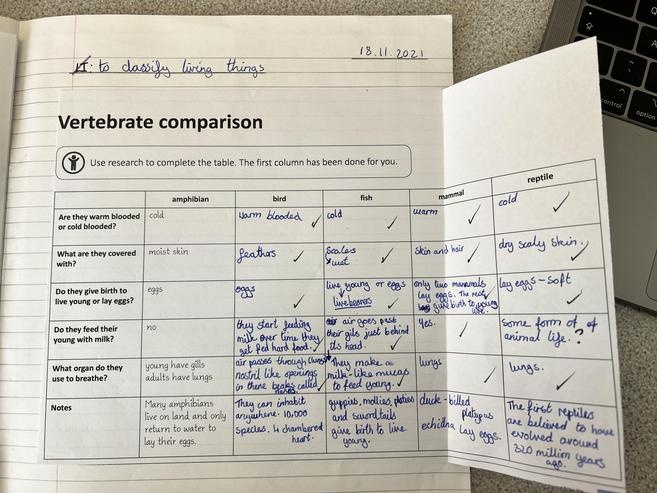 18.11.2021
LI: to classify living things
Vertebrate comparison
Use research to complete the table. The first column has been done for you.
amphibian bird fish mammal reptile
Are they warm blooded or cold blooded?
cold
warm blooded
cold
warm
cold
What are they covered with?
moist skin
feathers
Scales
wet
skin and hair
dry scaly skin.
Do they give birth to live young or lay eggs?
eggs
eggs
live young or eggs
livebearers
only two mammals
lay eggs. The rest
give birth to young
live.
lay eggs - soft
Do they feed their young with milk?
no
they start feeding
milk over time they
get fed hard food.
air goes past
their gils just behind
it's head.
Yes.
Some form of of
animal life. ?
What organ do they use to breathe?
young have gills
adults have lungs
air passes through
nostril like openings
in there beaks called
nares.
They make a
milk-like mucas
to feed young.
lungs
lungs.
Notes
Many amphibians
live on land and only
return to water to
lay their eggs.
They can inhabit
anywhere. 10,000
species, 4 chambered
heart.
guppies, mollies, platies
and swordtails
give birth to live
young.
duck-billed
platapus
echidna lay eggs.
The first reptiles
are believed to have
evolved around
320 million years
ago.
control
option